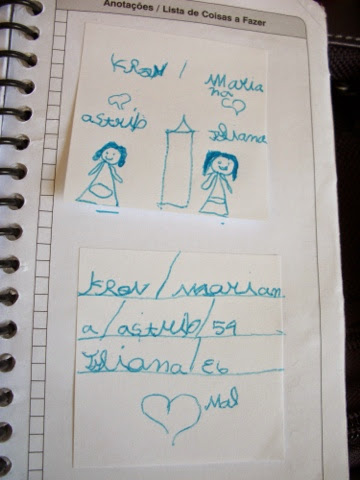 Anotações / Lista de Coisas a Fazer
KRON / Maria
na
astrid
Iliana
KRON / marian
a / astrid / 54
Iliana / E6